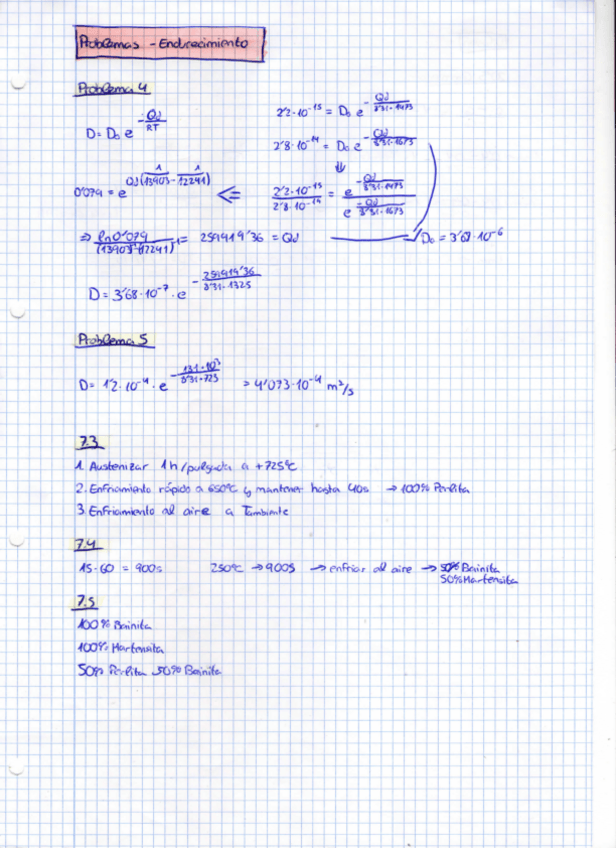 Problemas - Endurecimiento
Problema 4
D = D₀ e^(-Qd/RT)
2'2·10⁻¹⁵ = D₀ e^(-Qd/8'31·1473)
2'8·10⁻¹⁴ = D₀ e^(-Qd/8'31·1673)
⇓
0'079 = e^(Qd(1/13903 - 1/12241)) ⇐ 2'2·10⁻¹⁵/2'8·10⁻¹⁴ = e^(-Qd/8'31·1473)/e^(-Qd/8'31·1673)
⇒ ln 0'079/(13903⁻¹-12241⁻¹) = 259919'36 = Qd → D₀ = 3'68·10⁻⁶
D = 3'68·10⁻⁷ · e^(-259919'36/8'31·1325)
Problema 5
D = 1'2·10⁻⁴ · e^(-131·10³/8'31·723) = 4'073·10⁻⁴ m²/s
7.3
1. Austenizar 1h/pulgada a +725ºC
2. Enfriamiento rápido a 650ºC y mantener hasta 40s → 100% Perlita
3. Enfriamiento al aire a Tambiente
7.4
15·60 = 900s 250ºC → 900s → enfriar al aire → 50% Bainita
50% Martensita
7.5
100% Bainita
100% Martensita
50% Perlita 50% Bainita